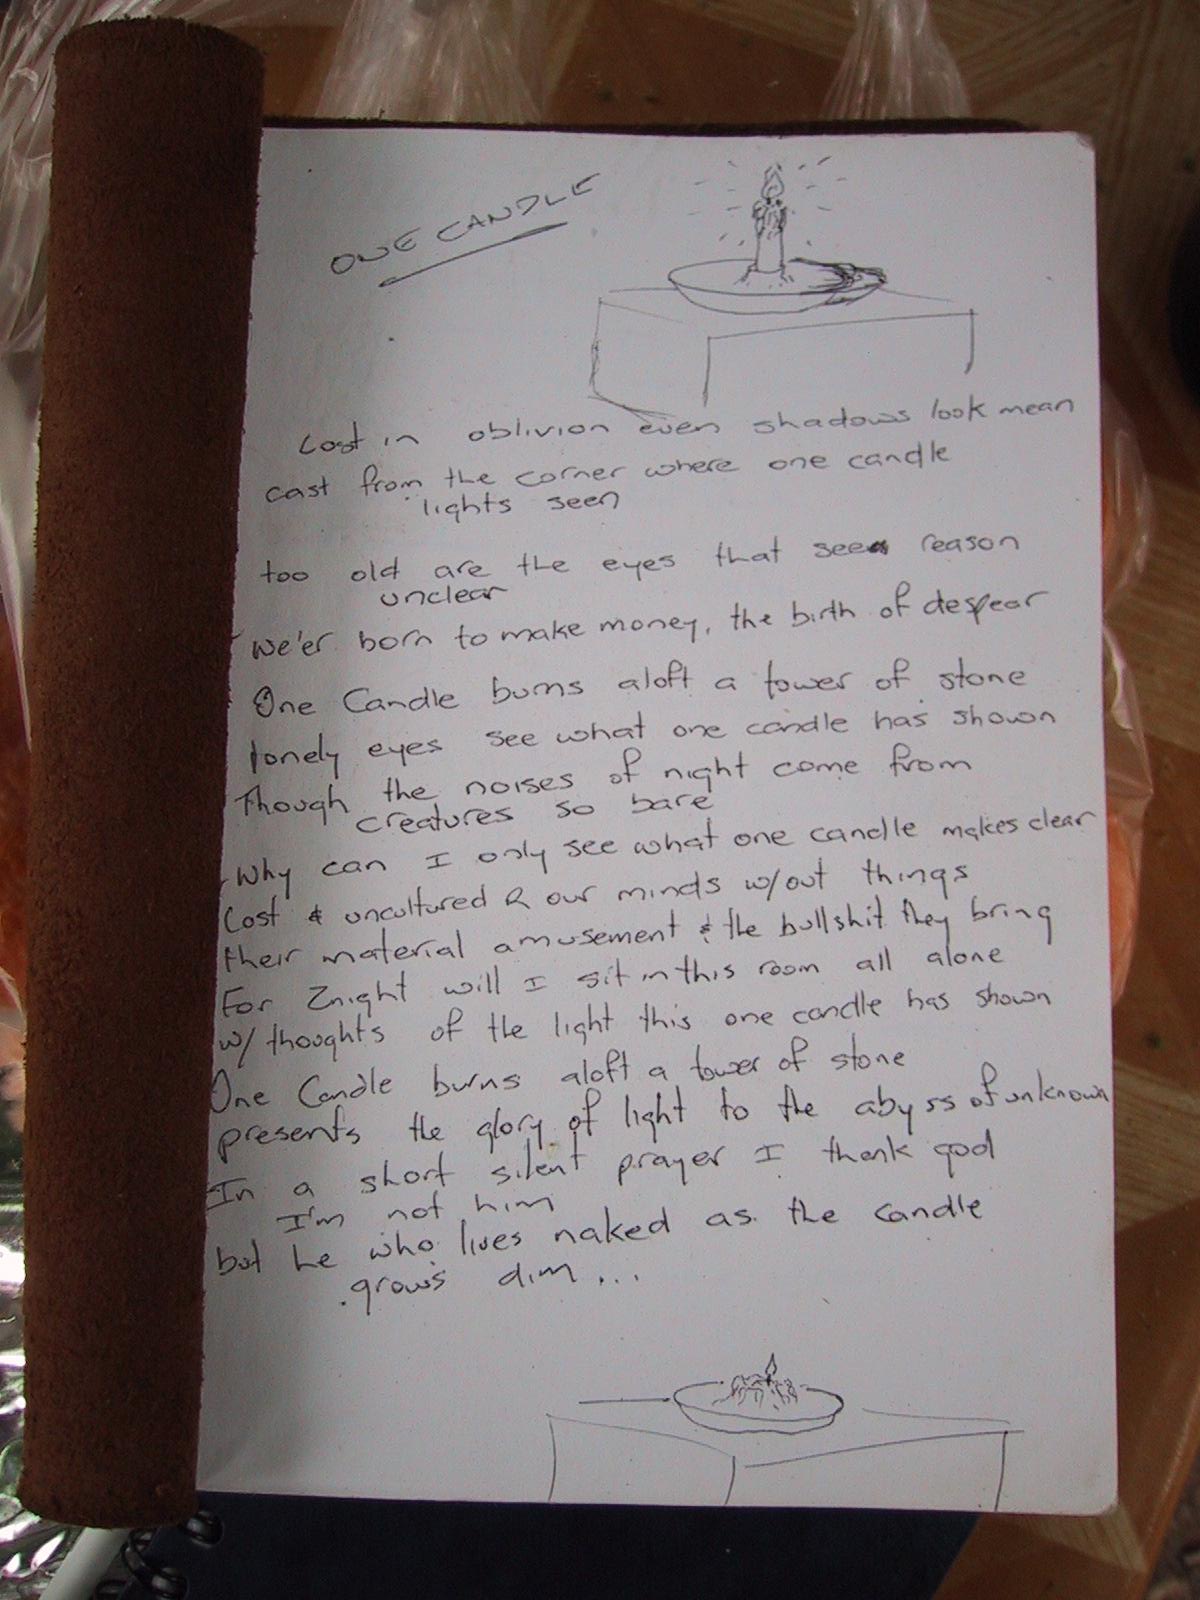 ONE CANDLE
Lost in oblivion even shadows look mean
cast from the corner where one candle
lights seen
too old are the eyes that see reason
unclear
we'er born to make money, the birth of despear
One Candle burns aloft a tower of stone
lonely eyes see what one candle has shown
Though the noises of night come from
creatures so bare
Why can I only see what one candle makes clear
Lost & uncultured R our minds w/out things
their material amusement & the bullshit they bring
For 2night will I sit in this room all alone
w/ thoughts of the light this one candle has shown
One Candle burns aloft a tower of stone
presents the glory of light to the abyss of unknown
In a short silent prayer I thank god
I'm not him
but he who lives naked as the candle
grows dim...